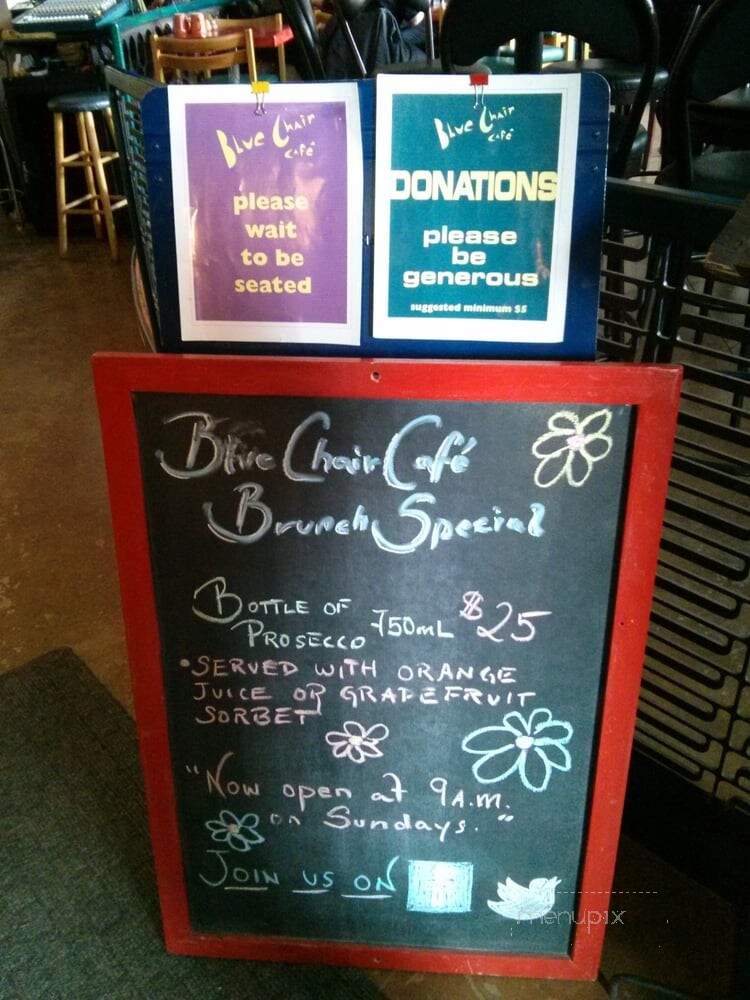 Blue Chair
Café
please
wait
to be
seated
Blue Chair
Café
DONATIONS
please
be
generous
suggested minimum $5
Blue Chair Café
Brunch Special
BOTTLE OF
PROSECCO 750mL $25
•SERVED WITH ORANGE
JUICE OR GRAPEFRUIT
SORBET
"Now open at 9A.M.
on Sundays."
JOIN US ON
menupix